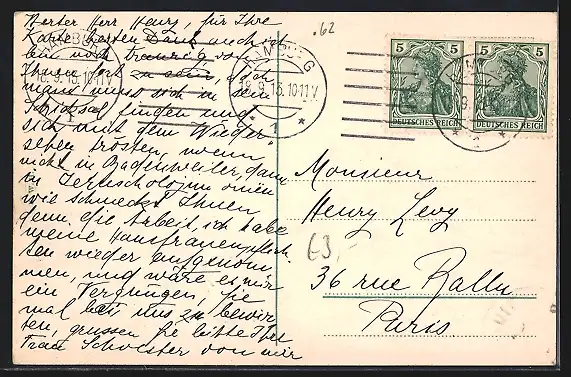 Werter Herr Henry, für Ihre
Karte besten Dank auch ich
bin noch traurig von
Ihnen fort zu sein, doch
man muss sich in sein
Schicksal finden und
sich mit dem Wieder"
sehen trösten, wenn
nicht in Badenweiler, dann
in
wie schmeckt Ihnen
denn, die Arbeit, ich habe
meine Hausfrauenpflich
ten wieder aufgenom
men, und wäre es mir
ein Vergnügen, Sie
mal bei uns zu bewir
ten, grüssen Sie bitte Ihre
Frau Schwester von mir
.62
HAMBURG
16.9.13.10-11V
1
HAMBURG
16.9.13.10-11V
* 1 *
5 5
DEUTSCHES REICH
5 5
DEUTSCHES REICH
Monsieur
Henry Levy
£3,-
36 rue
Paris